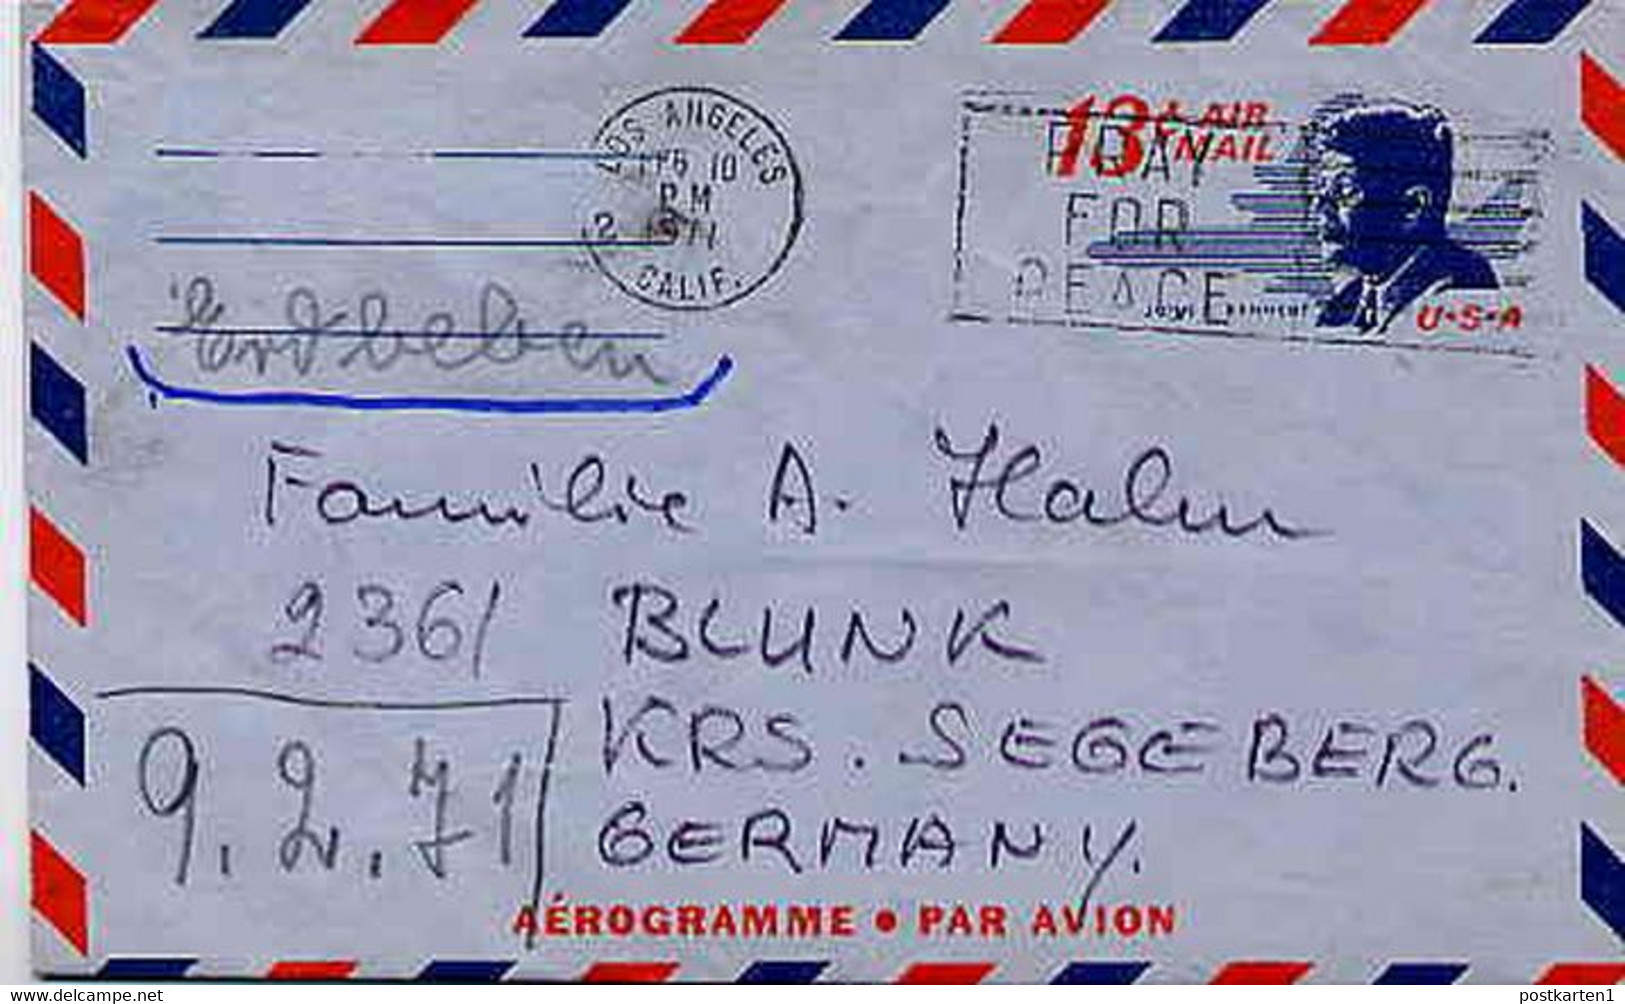 LOS ANGELES
10
PM
2 1971
CALIF.
13¢ AIR
MAIL
PRAY
FOR
PEACE
JOHN KENNEDY
U•S•A
Erdbeben
Familie A. Hahn
2361 BLUNK
KRS. SEGEBERG.
9.2.71
GERMANY.
AÉROGRAMME • PAR AVION
www.delcampe.net
postkarten1